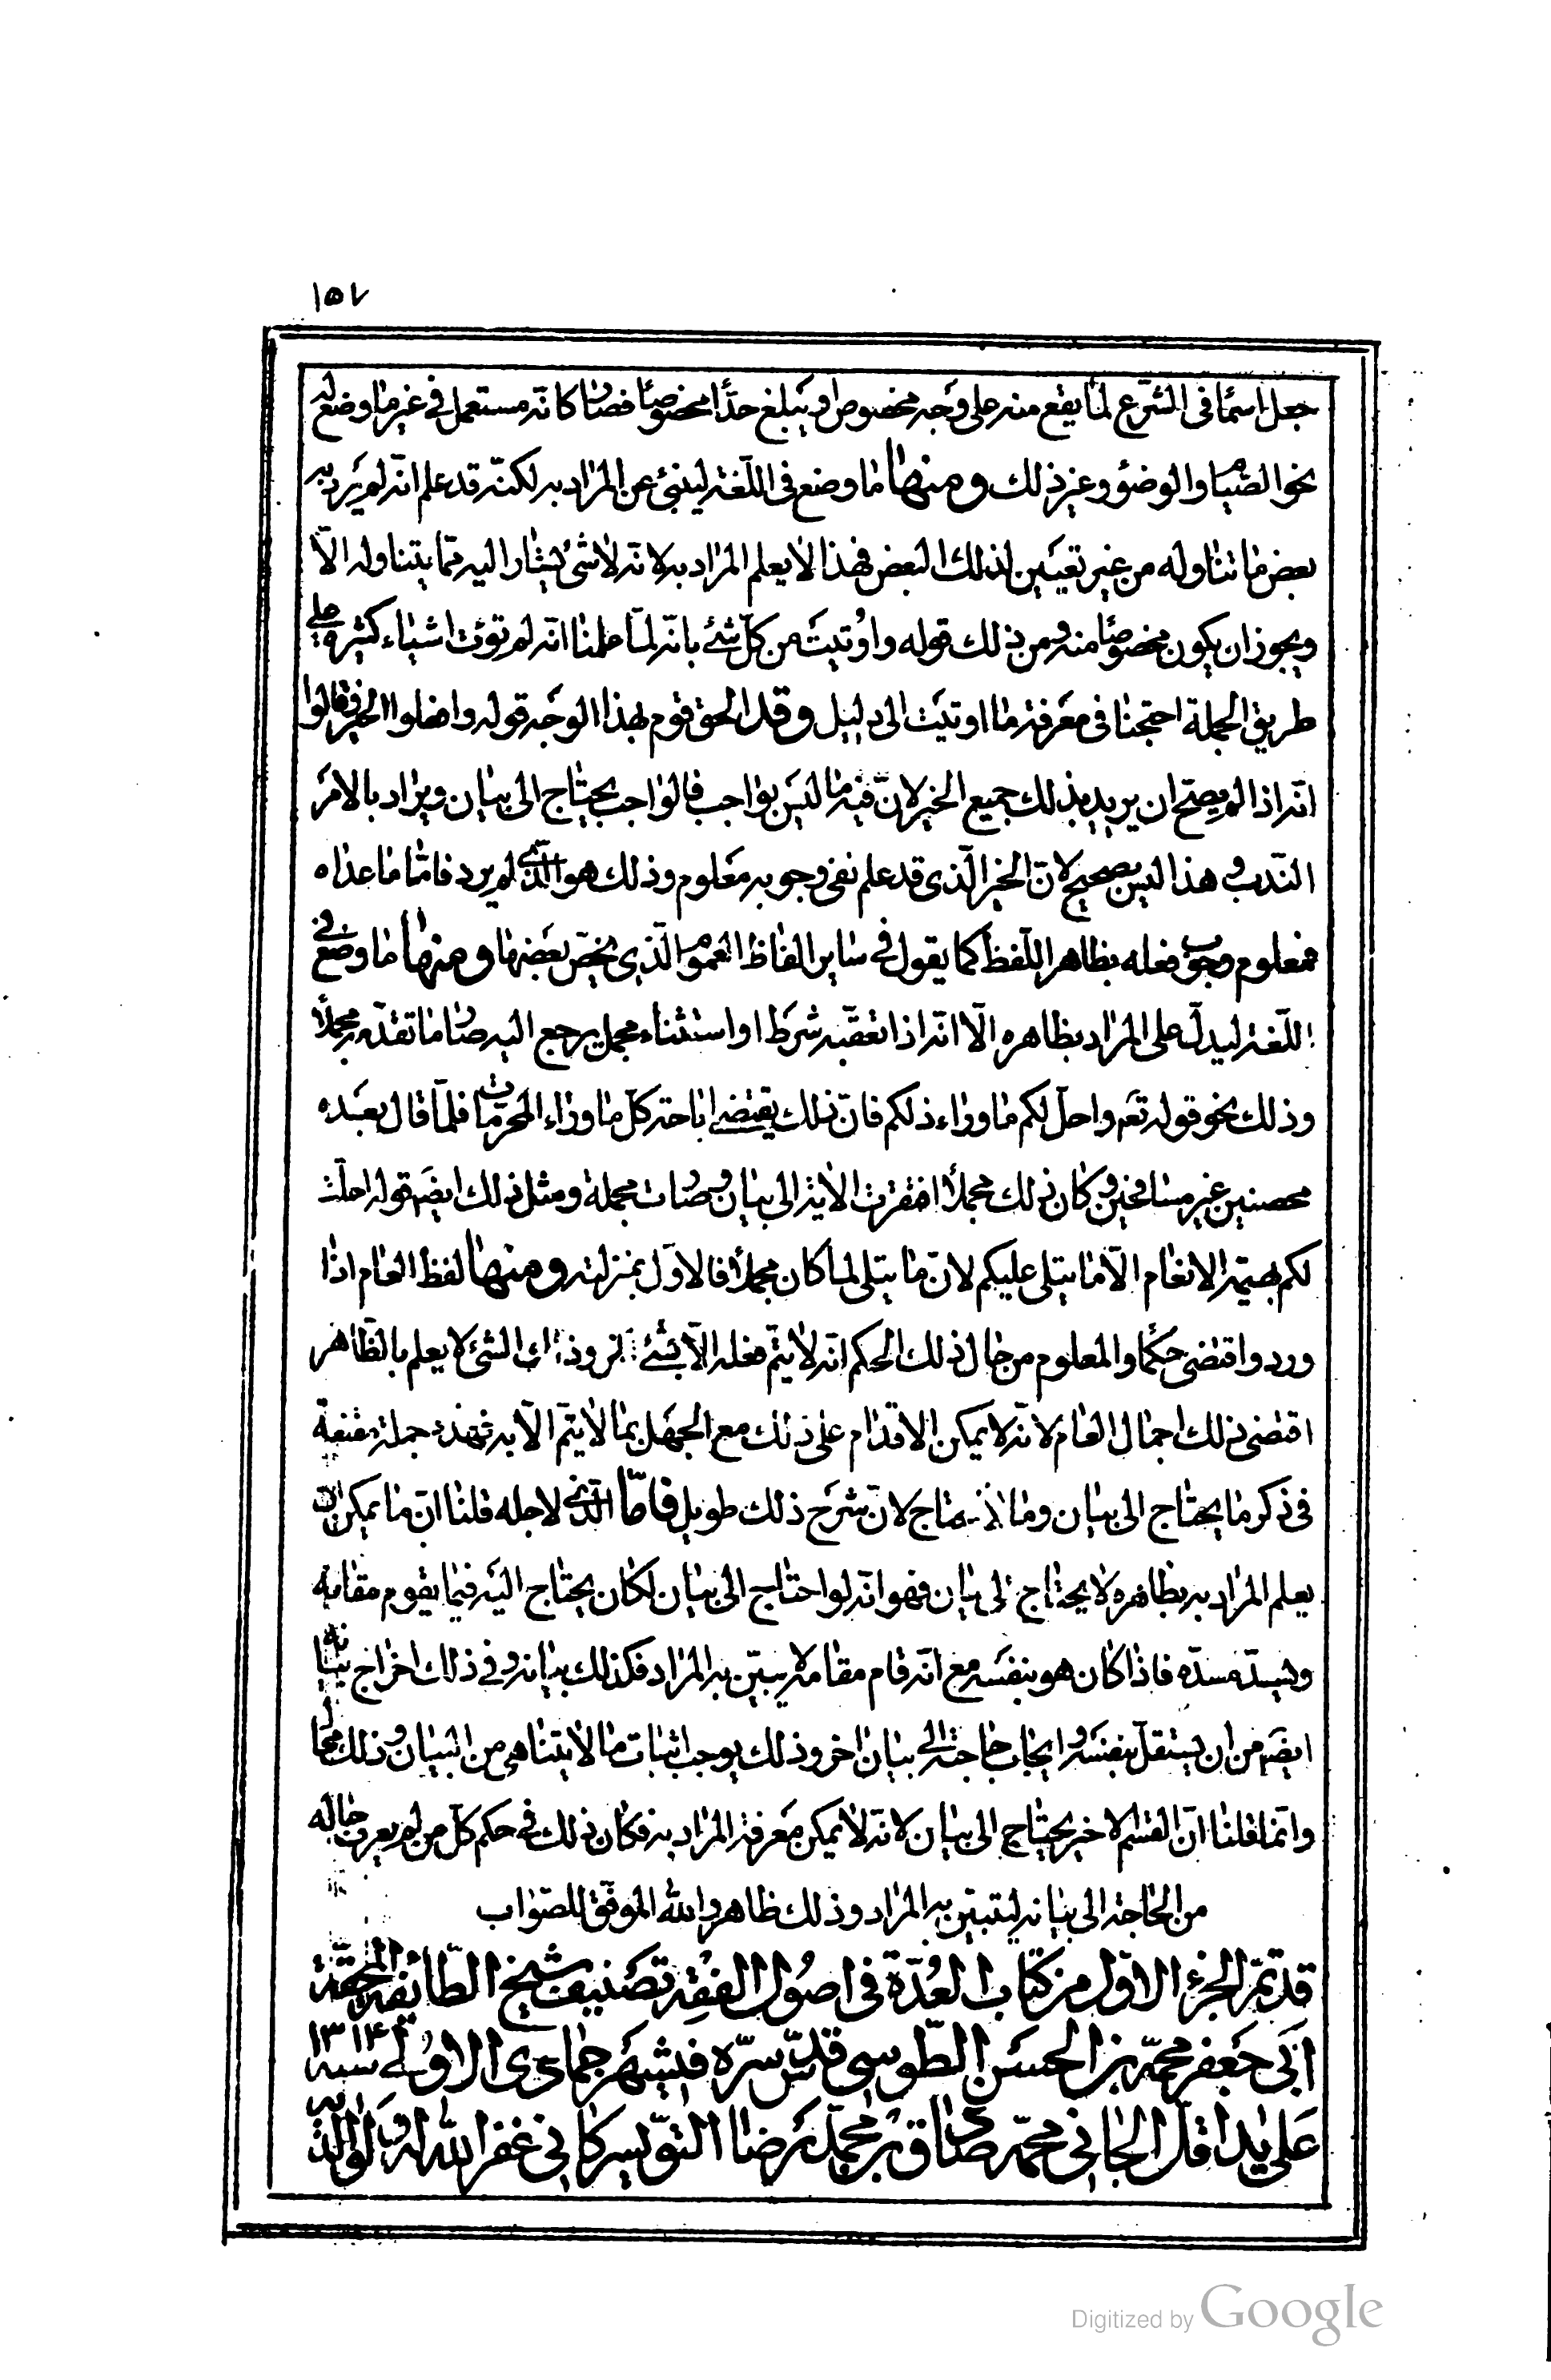 ١٥٧
جعل اسما فى الشرع لما يقع منه على وجه مخصوص او يبلغ حدّا مخصوصا فصار كانّه مستعمل فى غير ما وضع له
نحو الصّيام والوضوء وغير ذلك ومنها ما وضع فى اللّغة لينبئ عن المراد به لكنّه قد علم انّه لم يرد به
بعض ما تناوله من غير تعيين لذلك البعض فهذا لا يعلم المراد به لانّه لا شئ يشار اليه ممّا يتناوله الّا
ويجوز ان يكون مخصوصا منه ومن ذلك قوله واوتيت من كلّ شئ بانّه لمّا علمنا انّه لم تؤت اشياء كثيرة على
طريق الجملة احتجنا فى معرفة ما اوتيت الى دليل وقد الحق قوم بهذا الوجه قوله وافعلوا الخير فقالوا
انّه اذا لم يصحّ ان يريد بذلك جميع الخير لانّ فيه ما ليس بواجب فالواجب يحتاج الى بيان ويراد بالامر
النّدب وهذا ليس بصحيح لانّ الخير الّذى قد علم نفى وجوبه معلوم وذلك هو الّذى لم يرد فامّا ما عداه
فمعلوم وجوب فعله بظاهر اللّفظ كما يقول فى ساير الفاظ العموم الّذى يخصّ بعضها ومنها ما وضع فى
اللّغة ليدلّ على المراد بظاهره الّا انّه اذا تعقّبه شرط او استثناء مجمل يرجع اليه صار ما تقدّمه مجملا
وذلك نحو قوله تعم واحلّ لكم ما وراء ذلكم فانّ ذلك يقتضى اباحة كلّ ما وراء المحرّمات فلمّا قال بعده
محصنين غير مسافحين وكان ذلك مجملا افتقرت الاية الى بيان وصارت مجملة ومثل ذلك ايضم قوله احلّت
لكم بهيمة الانعام الّا ما يتلى عليكم لانّ ما يتلى لما كان مجملا فالاوّل بمنزلته ومنها لفظ العام اذا
ورد واقتضى حكما والمعلوم من حال ذلك الحكم انّه لا يتمّ فعله الّا بشئ اخر وذلك الشئ لا يعلم بالظّاهر
اقتضى ذلك اجمال العام لانّه لا يمكن الاقدام على ذلك مع الجهل بما لا يتمّ الّا به فهذه جملة مقنعة
فى ذكر ما يحتاج الى بيان وما لا يحتاج لانّ شرح ذلك طويل فامّا الّذى لاجله قلنا انّ ما يمكن ان
يعلم المراد به بظاهره لا يحتاج الى بيان فهو انّه لو احتاج الى بيان لكان يحتاج اليه فيما يقوم مقامه
ويسدّ مسدّه فاذا كان هو بنفسه مع انّه قام مقامه لا يبيّن به المراد فكذلك بيانه وفى ذلك اخراج بيانه
ايضم من ان يستقلّ بنفسه وايجاب حاجته الى بيان اخر وذلك يوجب اثبات ما لا يتناهى من البيان وذلك محال
وانّما قلنا انّ القسم الاخر يحتاج الى بيان لانّه لا يمكن معرفة المراد به فكان ذلك فى حكم كلّ من لم يعرف حاله
من الحاجة الى بيانه ليتبيّن به المراد وذلك ظاهر والله الموفّق للصّواب
قد تمّ الجزء الاوّل من كتاب العُدّة فى اصُول الفقه تصنيف شيخ الطّائفة المحقّة
ابى جعفر محمّد بن الحسن الطّوسى قدّس سرّه فى شهر جمادى الاولى سنه ١٣١٤
على يد اقلّ الجانى محمّد صادق بن محمّد رضا التّويسركانى غفر الله له ولوالديه
Digitized by Google